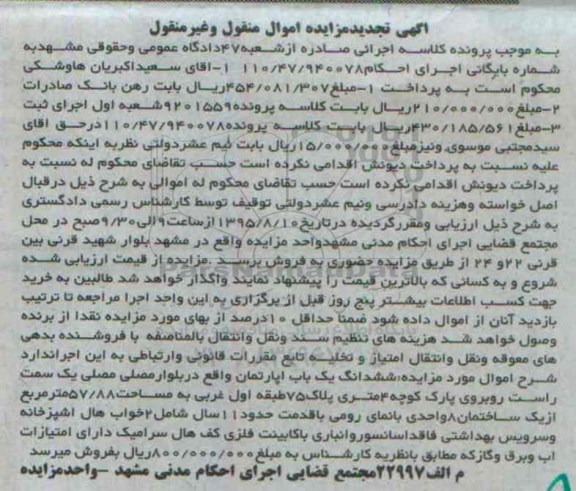 اگهی تجدیدمزایده اموال منقول وغیرمنقول
به موجب پرونده کلاسه اجرائی صادره ازشعبه۴۷دادگاه عمومی وحقوقی مشهدبه
شماره بایگانی اجرای احکام۱۱۰/۴۷/۹۴۰۰۷۸ ۱-اقای سعیداکبریان هاوشکی
محکوم است به پرداخت ۱-مبلغ۴۵۴/۰۸۱/۳۰۷ریال بابت رهن بانک صادرات
۲-مبلغ۲۱۰/۰۰۰/۰۰۰ریال بابت کلاسه پرونده۹۲۰۱۵۵۹شعبه اول اجرای ثبت
۳-مبلغ۴۳۰/۱۸۵/۵۶۱ریال بابت کلاسه پرونده۱۱۰/۴۷/۹۴۰۰۷۸درحق اقای
سیدمجتبی موسوی ونیزمبلغ۱۵/۰۰۰/۰۰۰ریال بابت نیم عشردولتی نظربه اینکه محکوم
علیه نسبت به پرداخت دیونش اقدامی نکرده است حسب تقاضای محکوم له نسبت به
پرداخت دیونش اقدامی نکرده است حسب تقاضای محکوم له اموالی به شرح ذیل درقبال
اصل خواسته وهزینه دادرسی ونیم عشردولتی توقیف توسط کارشناس رسمی دادگستری
به شرح ذیل ارزیابی ومقررگردیده درتاریخ۱۳۹۵/۸/۱۰ازساعت۹الی۹/۳۰صبح در محل
مجتمع قضایی اجرای احکام مدنی مشهدواحد مزایده واقع در مشهد بلوار شهید قرنی بین
قرنی ۲۲و ۲۴ از طریق مزایده حضوری به فروش برسد .مزایده از قیمت ارزیابی شده
شروع و به کسانی که بالاترین قیمت را پیشنهاد نمایند واگذار خواهد شد طالبین به خرید
جهت کسب اطلاعات بیشتر پنج روز قبل از برگزاری به این واحد اجرا مراجعه تا ترتیب
بازدید آنان از اموال داده شود ضمنا حداقل ۱۰درصد از بهای مورد مزایده نقدا از برنده
وصول خواهد شد هزینه های تنظیم سند ونقل وانتقال بالمناصفه با فروشنده بدهی
های معوقه ونقل وانتقال امتیاز و تخلیه تابع مقررات قانونی وارتباطی به این اجراندارد
شرح اموال مورد مزایده:ششدانگ یک باب اپارتمان واقع دربلوارمصلی مصلی یک سمت
راست روبروی پارک کوچه۴متری پلاک۷۵طبقه اول غربی به مساحت۵۷/۸۸مترمربع
ازیک ساختمان۸واحدی بانمای رومی باقدمت حدود۱۱سال شامل۲خواب هال اشپزخانه
وسرویس بهداشتی فاقداسانسوروانباری باکابینت فلزی کف هال سرامیک دارای امتیازات
اب وبرق وگازکه مطابق بانظریه کارشناس به مبلغ۸۰۰/۰۰۰/۰۰۰ریال بفروش میرسد
م الف۲۲۹۹۷مجتمع قضایی اجرای احکام مدنی مشهد -واحدمزایده